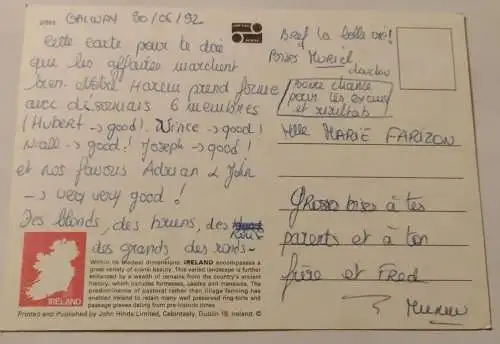 GALWAY 30/06/92
Cette carte pour te dire
que les affaires marchent
bien. Hôtel Harem prend forme
avec désormais 6 membres
(Hubert → good!. Vince → good!
Niall → good! Joseph → good!
et nos favoris Adrian & John
→ very very good!
Des blonds, des bruns, des
des grands des ronds -
Within its modest dimensions IRELAND encompasses a
great variety of scenic beauty. This varied landscape is further
enhanced by a wealth of remains from the country's ancient
history, which includes fortresses, castles and mansions. The
predominence of pastoral rather than tillage farming has
enabled Ireland to retain many well preserved ring-forts and
passage graves dating from pre-historic times
IRELAND
Printed and Published by John Hinde Limited, Cabinteely, Dublin 18, Ireland. ©
Bref la belle vie!
Bises Muriel
bonne chance
pour les exams
et résultats
Mlle MARIE FARIZON
Grosses bises à tes
parents et à ton
frère et Fred
Muriel